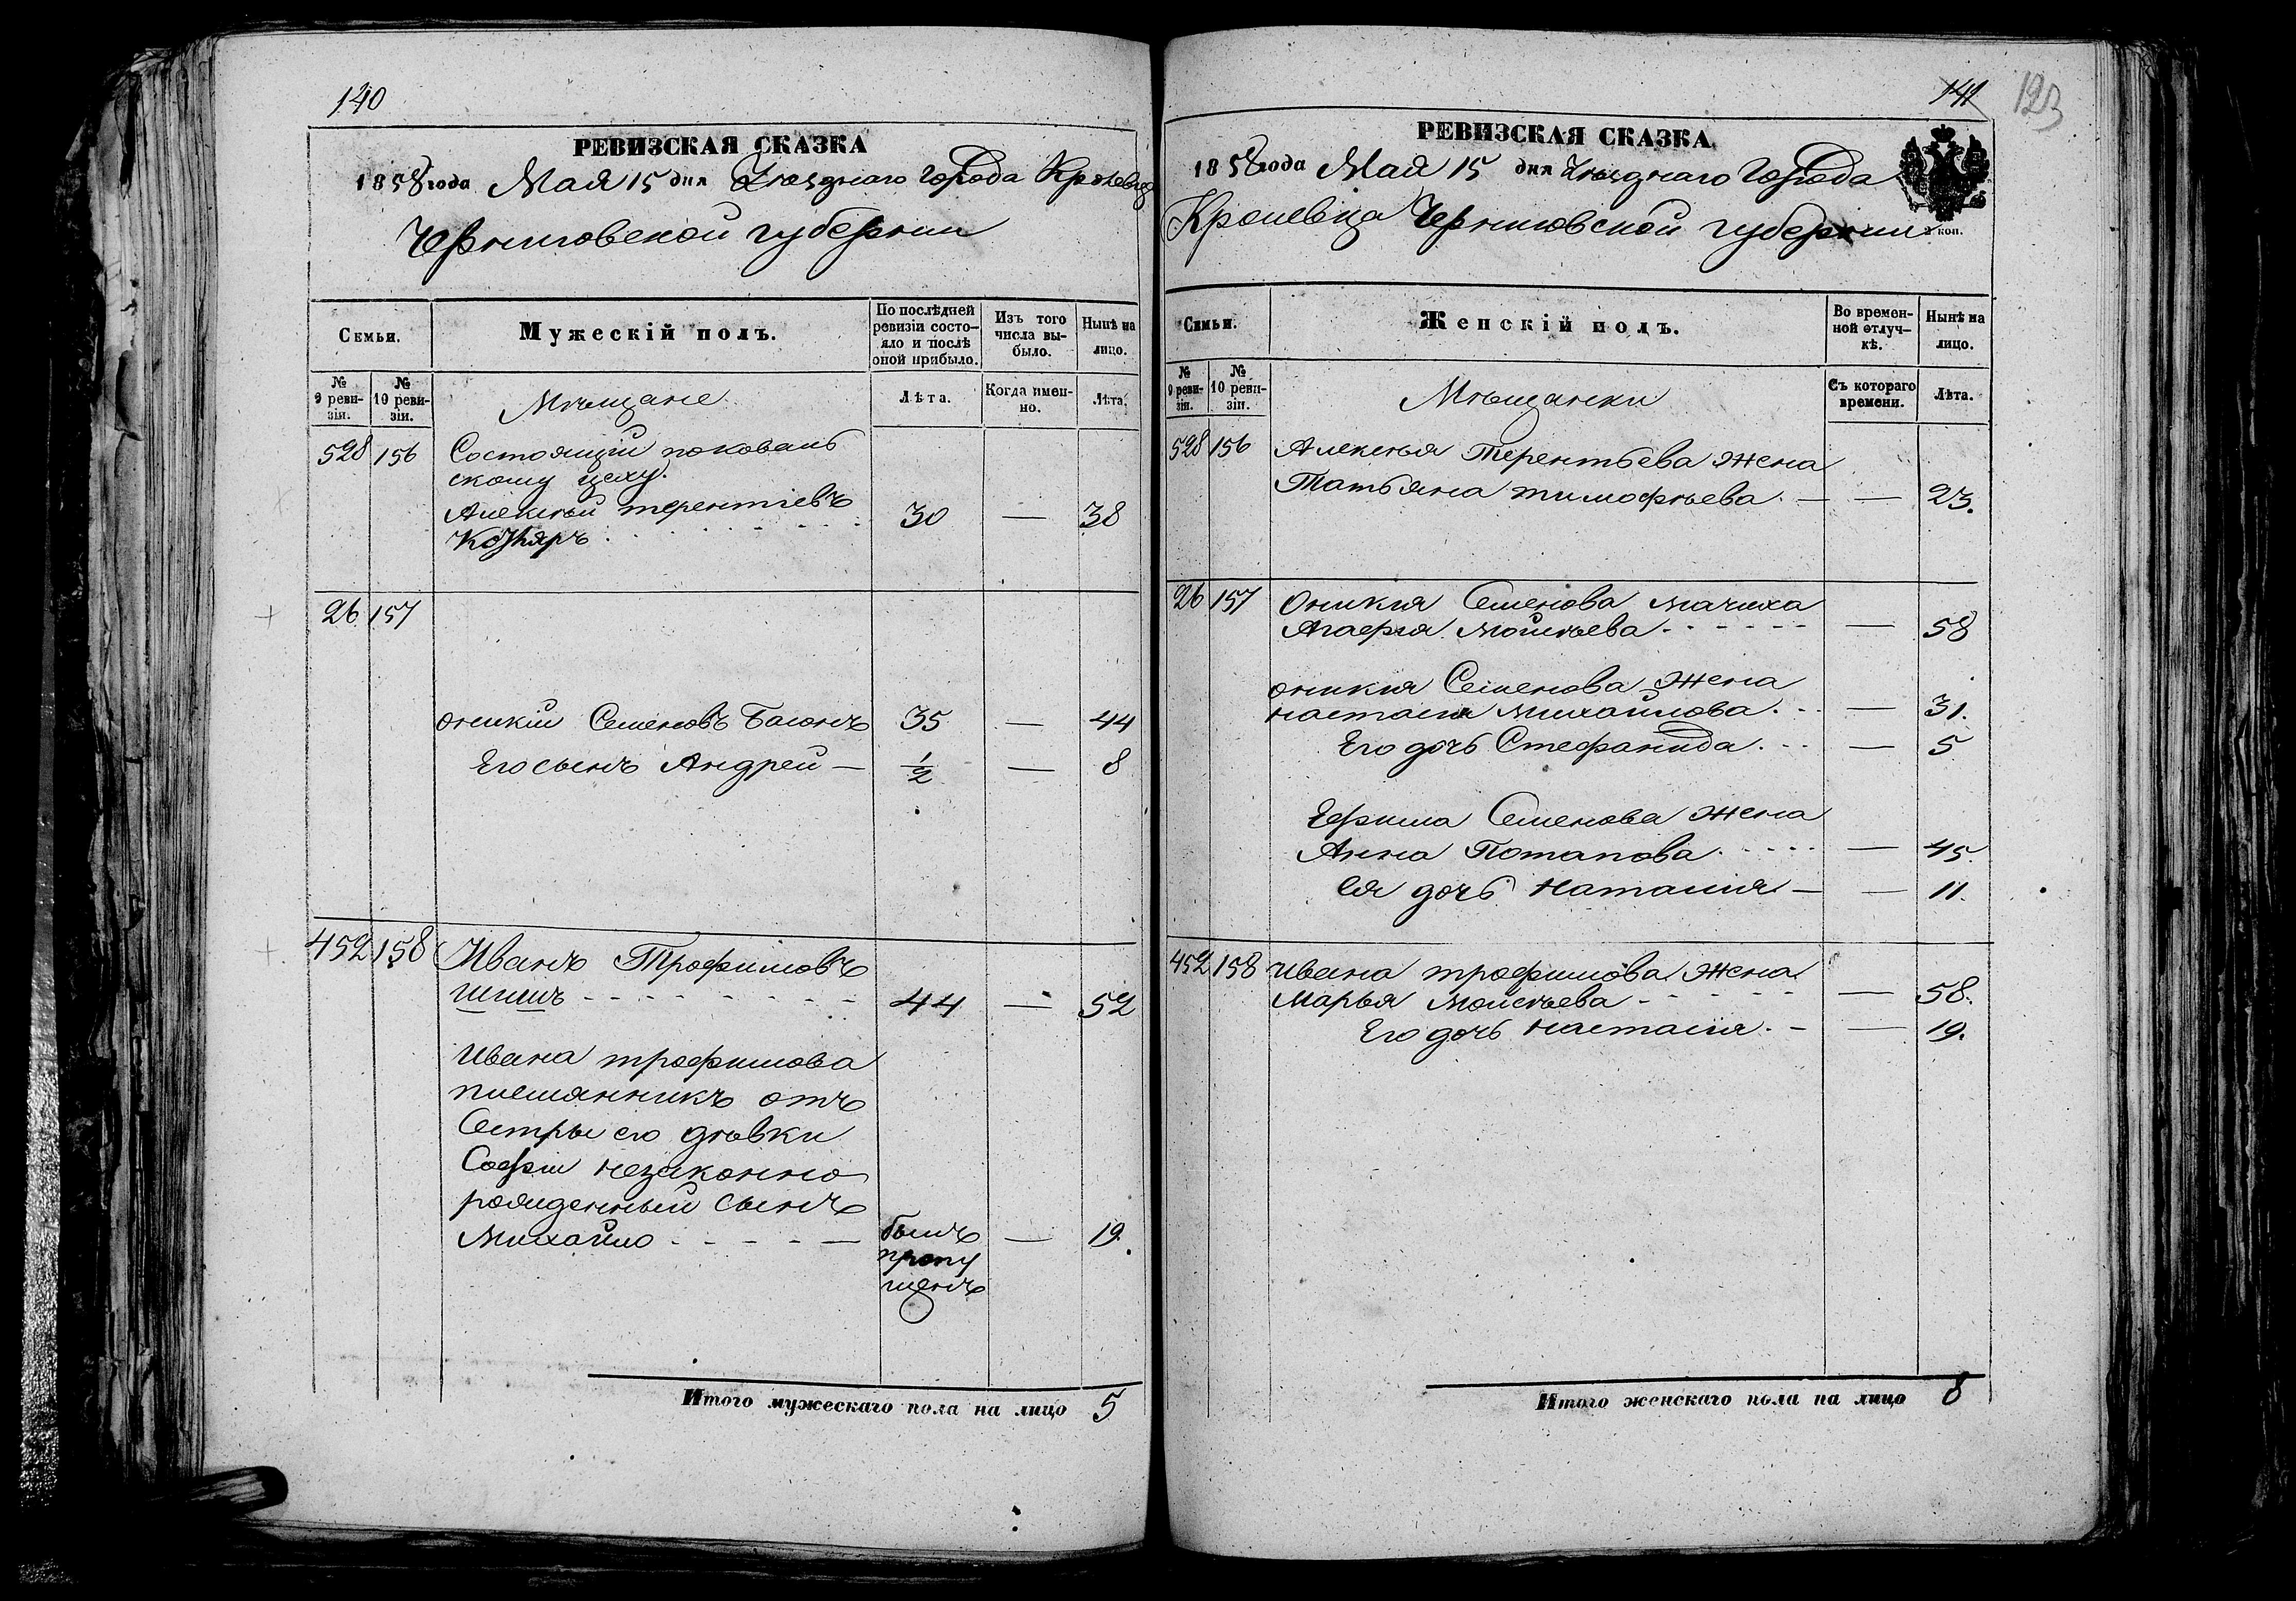 140
РЕВИЗСКАЯ СКАЗКА
1858 года Мая 15 дня Уѣзднаго города Кролевца
Черниговской губернiи
Семьи.
Мужескiй полъ.
По послѣдней ревизiи состо-
яло и послѣ
оной прибыло.
Изъ того
числа вы-
было.
Нынѣ на
лицо.
№
9 реви-
зiи.
№
10 реви-
зiи.
Мѣщане
Лѣта.
Когда имен-
но.
Лѣта.
528 156 Состоящiй по коваль
скому цеху.
Алексѣй терентiевъ
Козняръ 30 — 38
26 157
оникiй Семеновъ 35 — 44
Его сынъ Андрей — 1/2 — 8
452 158 Иванъ Трофимовъ
Шишъ 44 — 52
Ивана трофимова
племянникъ отъ
Сестры его дѣвки
Софiи незаконно
рожденный сынъ
Михайло былъ — 19.
пропу
щенъ
Итого мужескаго пола на лицо 5
141 123
РЕВИЗСКАЯ СКАЗКА
1858 года Мая 15 дня Уѣзднаго города
Кролевца Черниговской губернiи
коп.
Семьи.
Женскiй полъ.
Во времен-
ной отлуч-
кѣ.
Нынѣ на
лицо.
№
9 реви-
зiи.
№
10 реви-
зiи.
Мѣщанки
Съ котораго
времени.
Лѣта.
528 156 Алексѣя Терентьева жена
Татьяна тимофѣева. — — 23.
26 157 Оникия Семенова мачиха
Агафiя Мойсѣева — 58
оникия Семенова жена
настасия михайлова. — 31.
Его дочь Стефанида. — 5
Ефима Семенова жена
Анна Потапова — 45.
Ея дочь Наталия — — 11.
452 158 Ивана трофимова жена
Марья Мойсѣева — 58.
Его дочь настасия. — — 19.
Итого женскаго пола на лицо 8